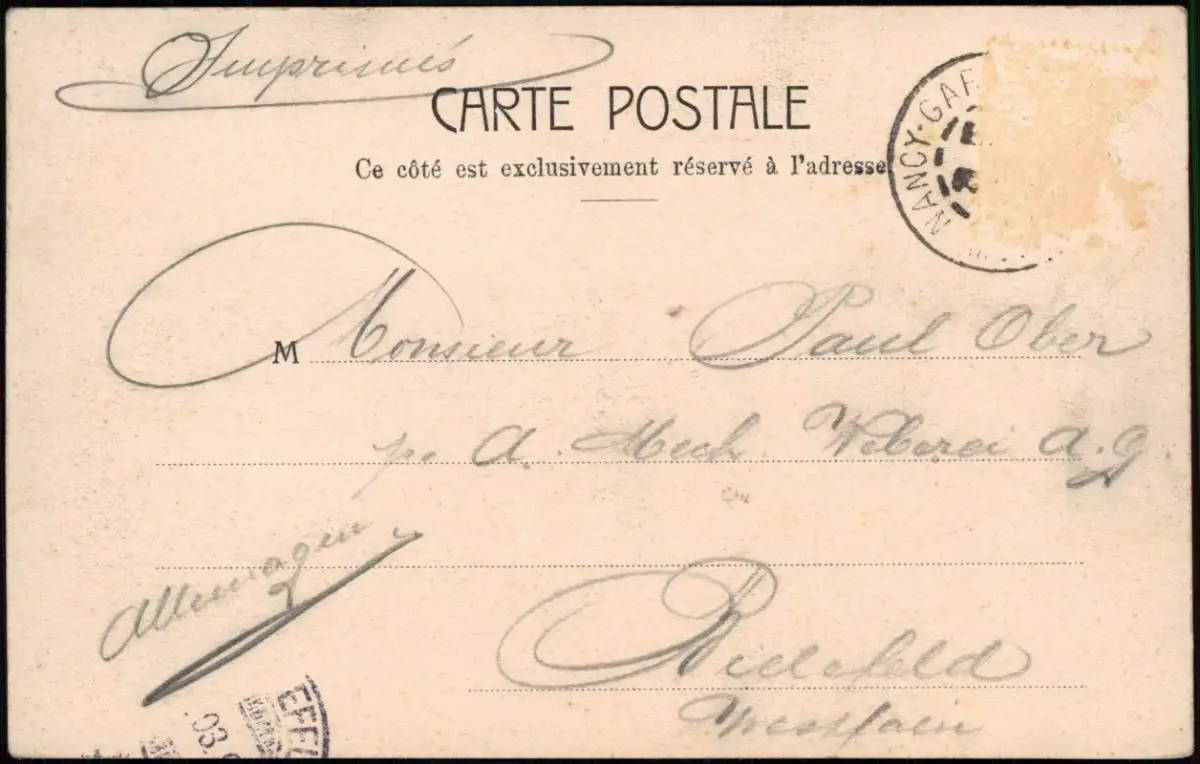 Imprimés
CARTE POSTALE
Ce côté est exclusivement réservé à l'adresse
NANCY-GAR
M Monsieur Paul Ober
A. Mech. Weberei A.G.
Allemagen
Bielefeld
Westfain
EFEL
03.